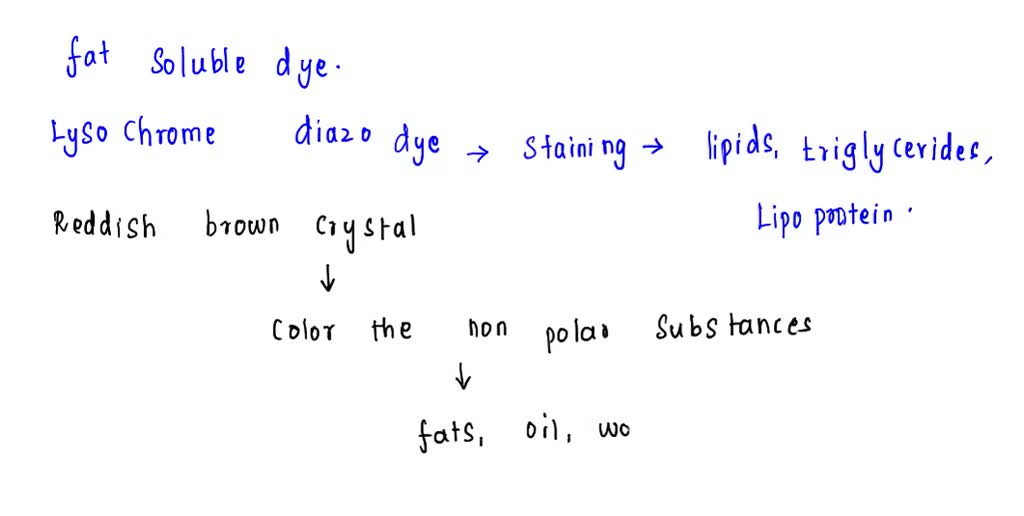 fat soluble dye.
Lyso Chrome diazo dye → staining → lipids, triglycerides,
Lipo protein.
Reddish brown crystal
↓
Color the non polar substances
↓
fats, oil, wo